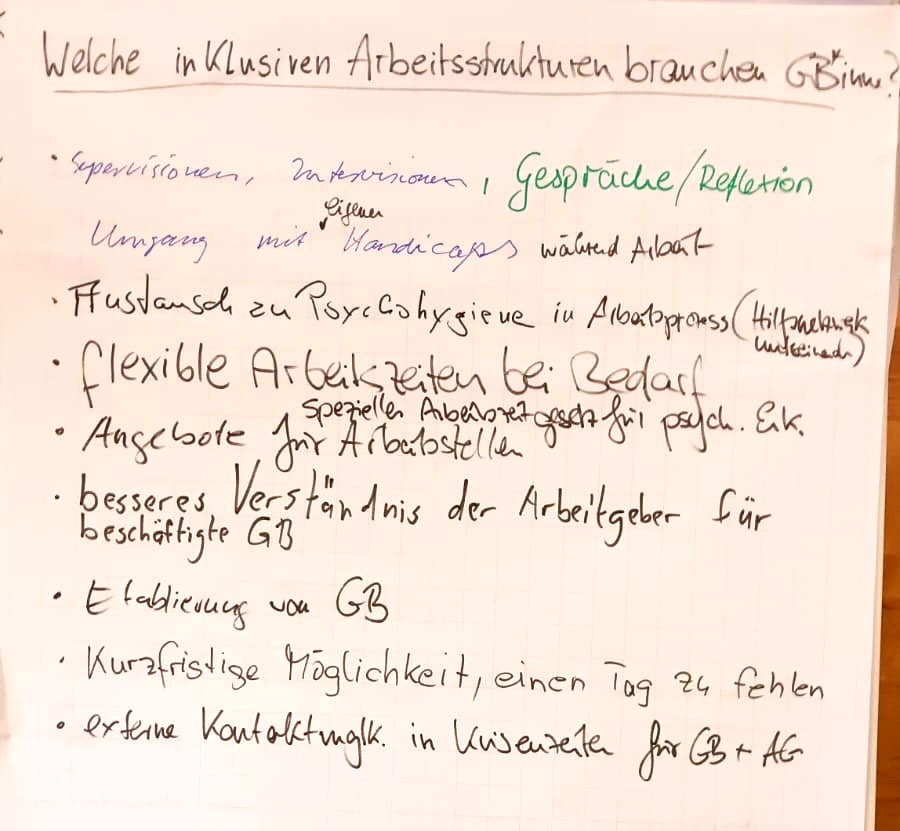 Welche inklusiven Arbeitsstrukturen brauchen GB*inn.?
• Supervisionen, Intervisionen, Gespräche/Reflexion
eigener
Umgang mit Handicaps während Arbeit
• Austausch zu Psychohygiene in Arbeitsprozess (Hilfsnetzwerk
untereinander)
• flexible Arbeitszeiten bei Bedarf
spezielles Arbeitszeitgesetz für psych. Erk.
• Angebote für Arbeitsstellen
• besseres Verständnis der Arbeitgeber für
beschäftigte GB
• Etablierung von GB
• Kurzfristige Möglichkeit, einen Tag zu fehlen
• externe Kontaktmglk. in Krisenzeiten für GB + AG